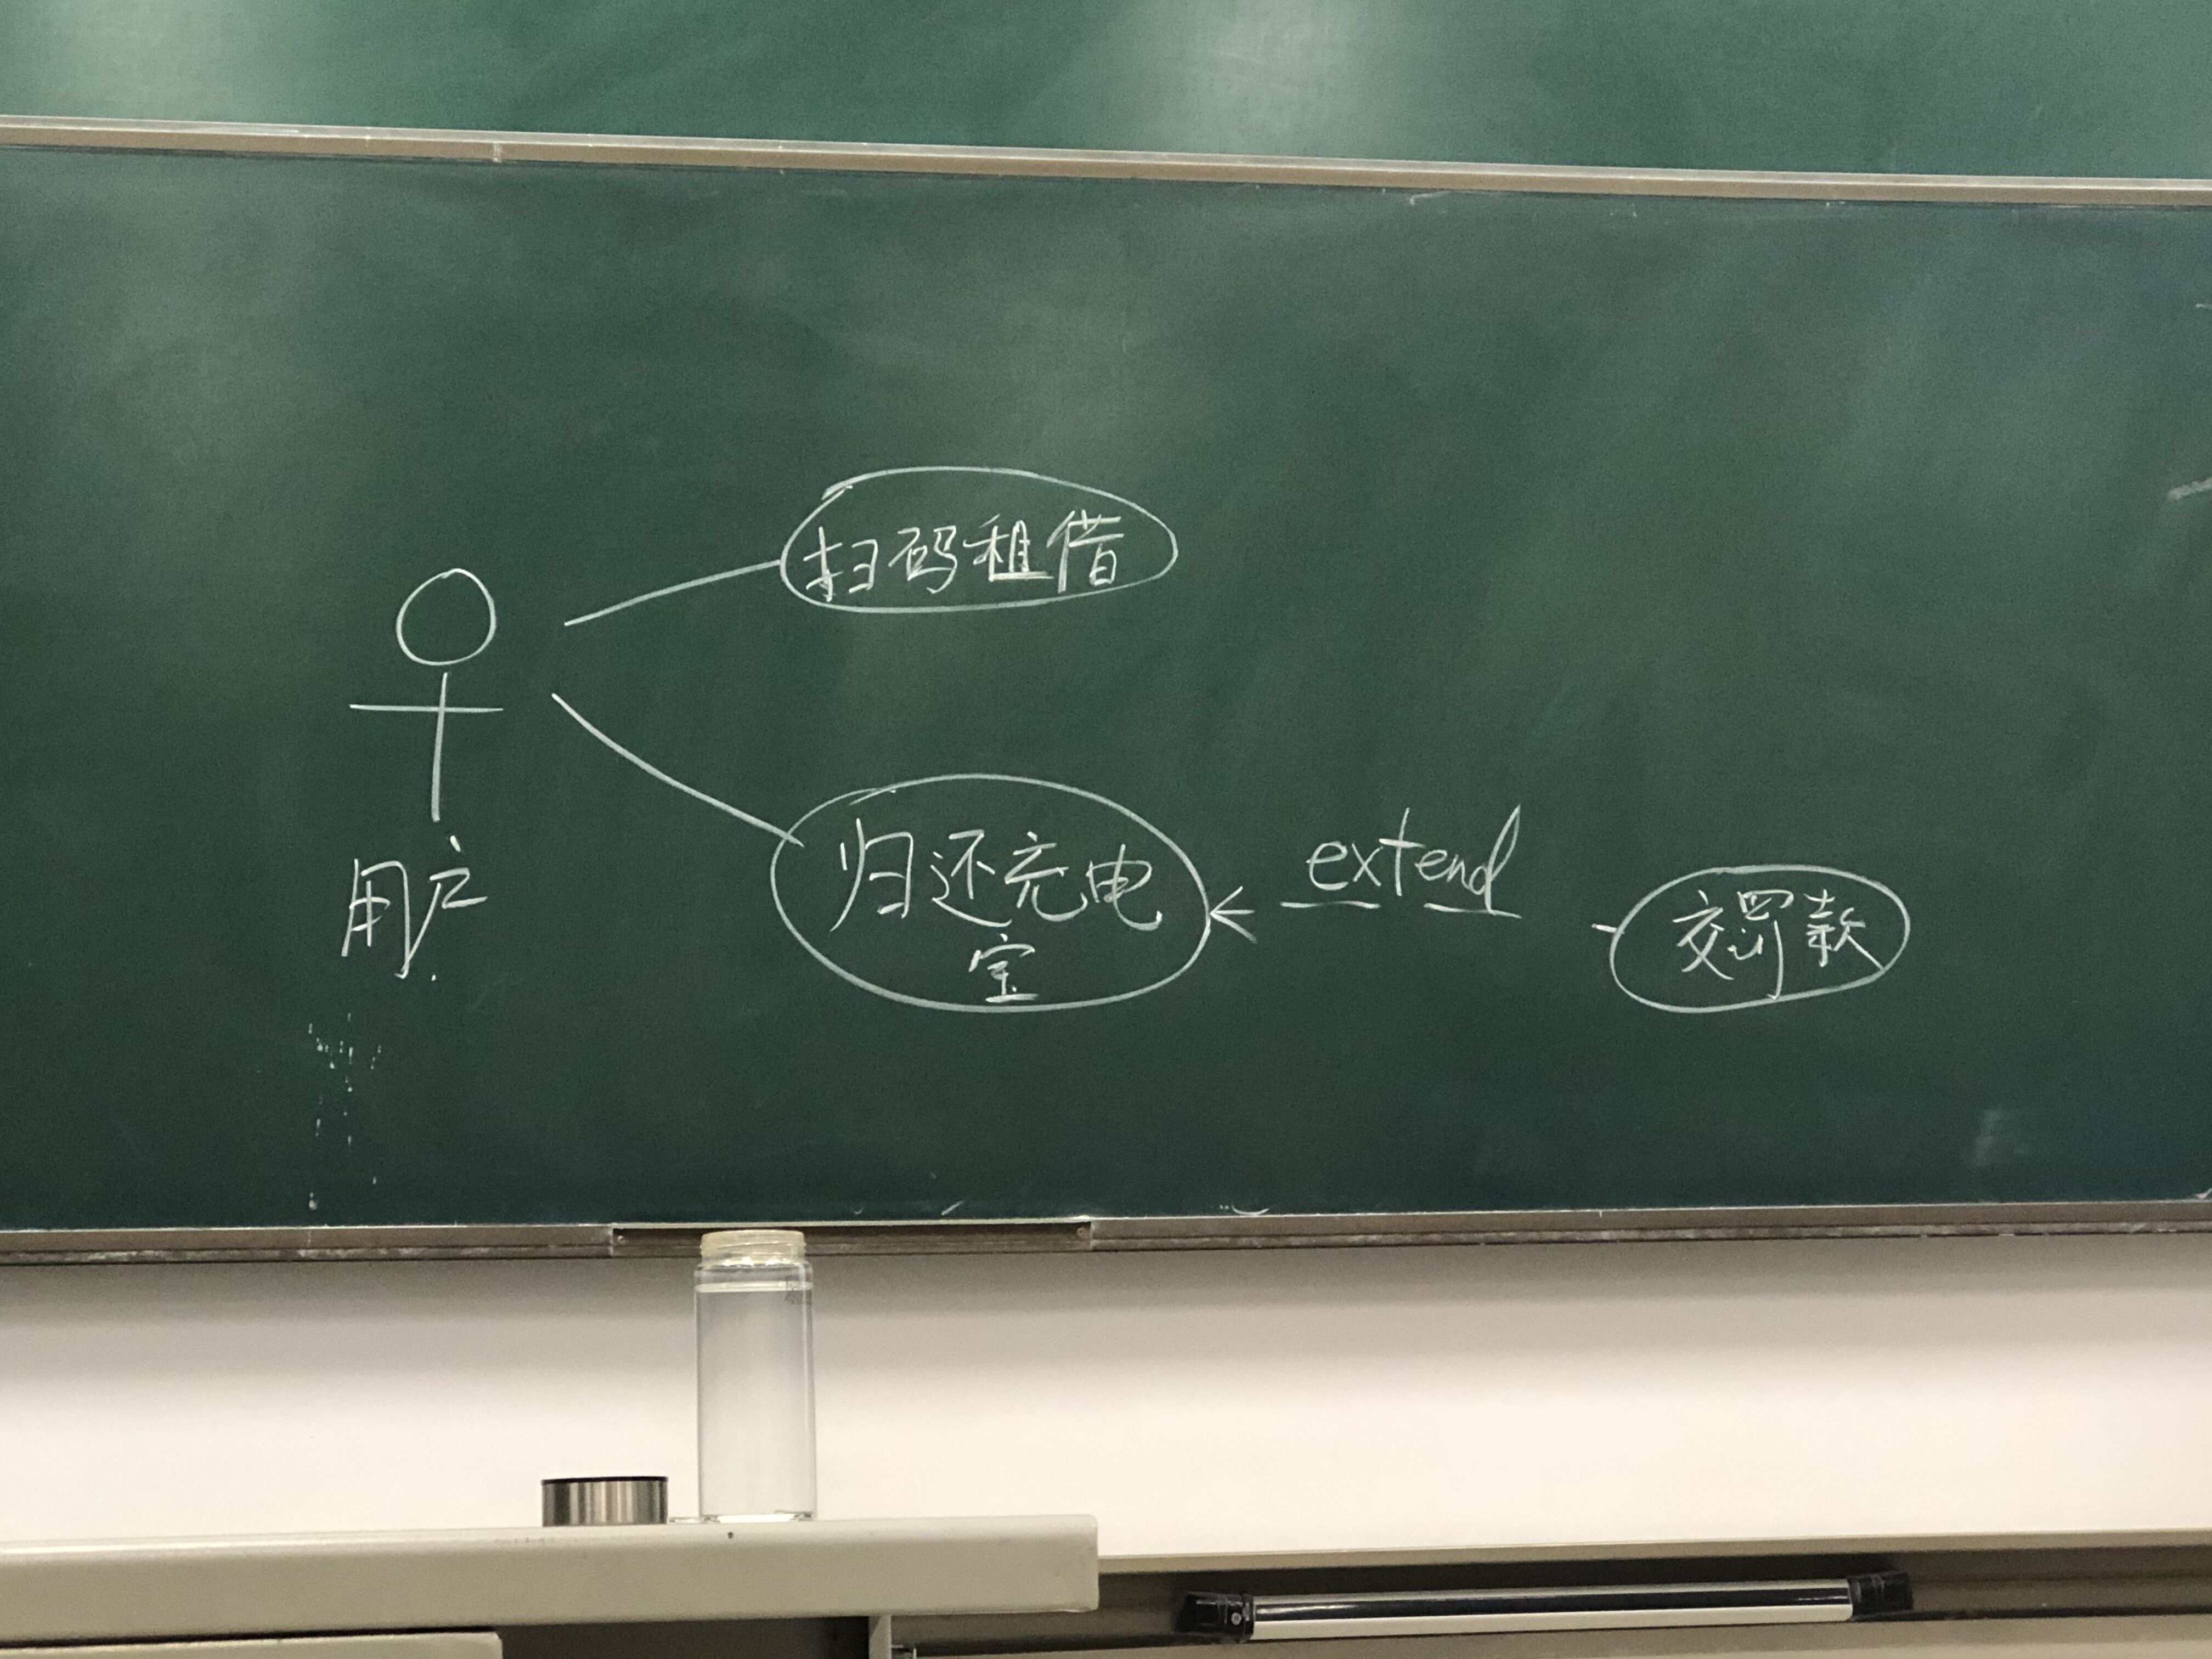 扫码租借
用户
归还充电
宝
extend
交罚款